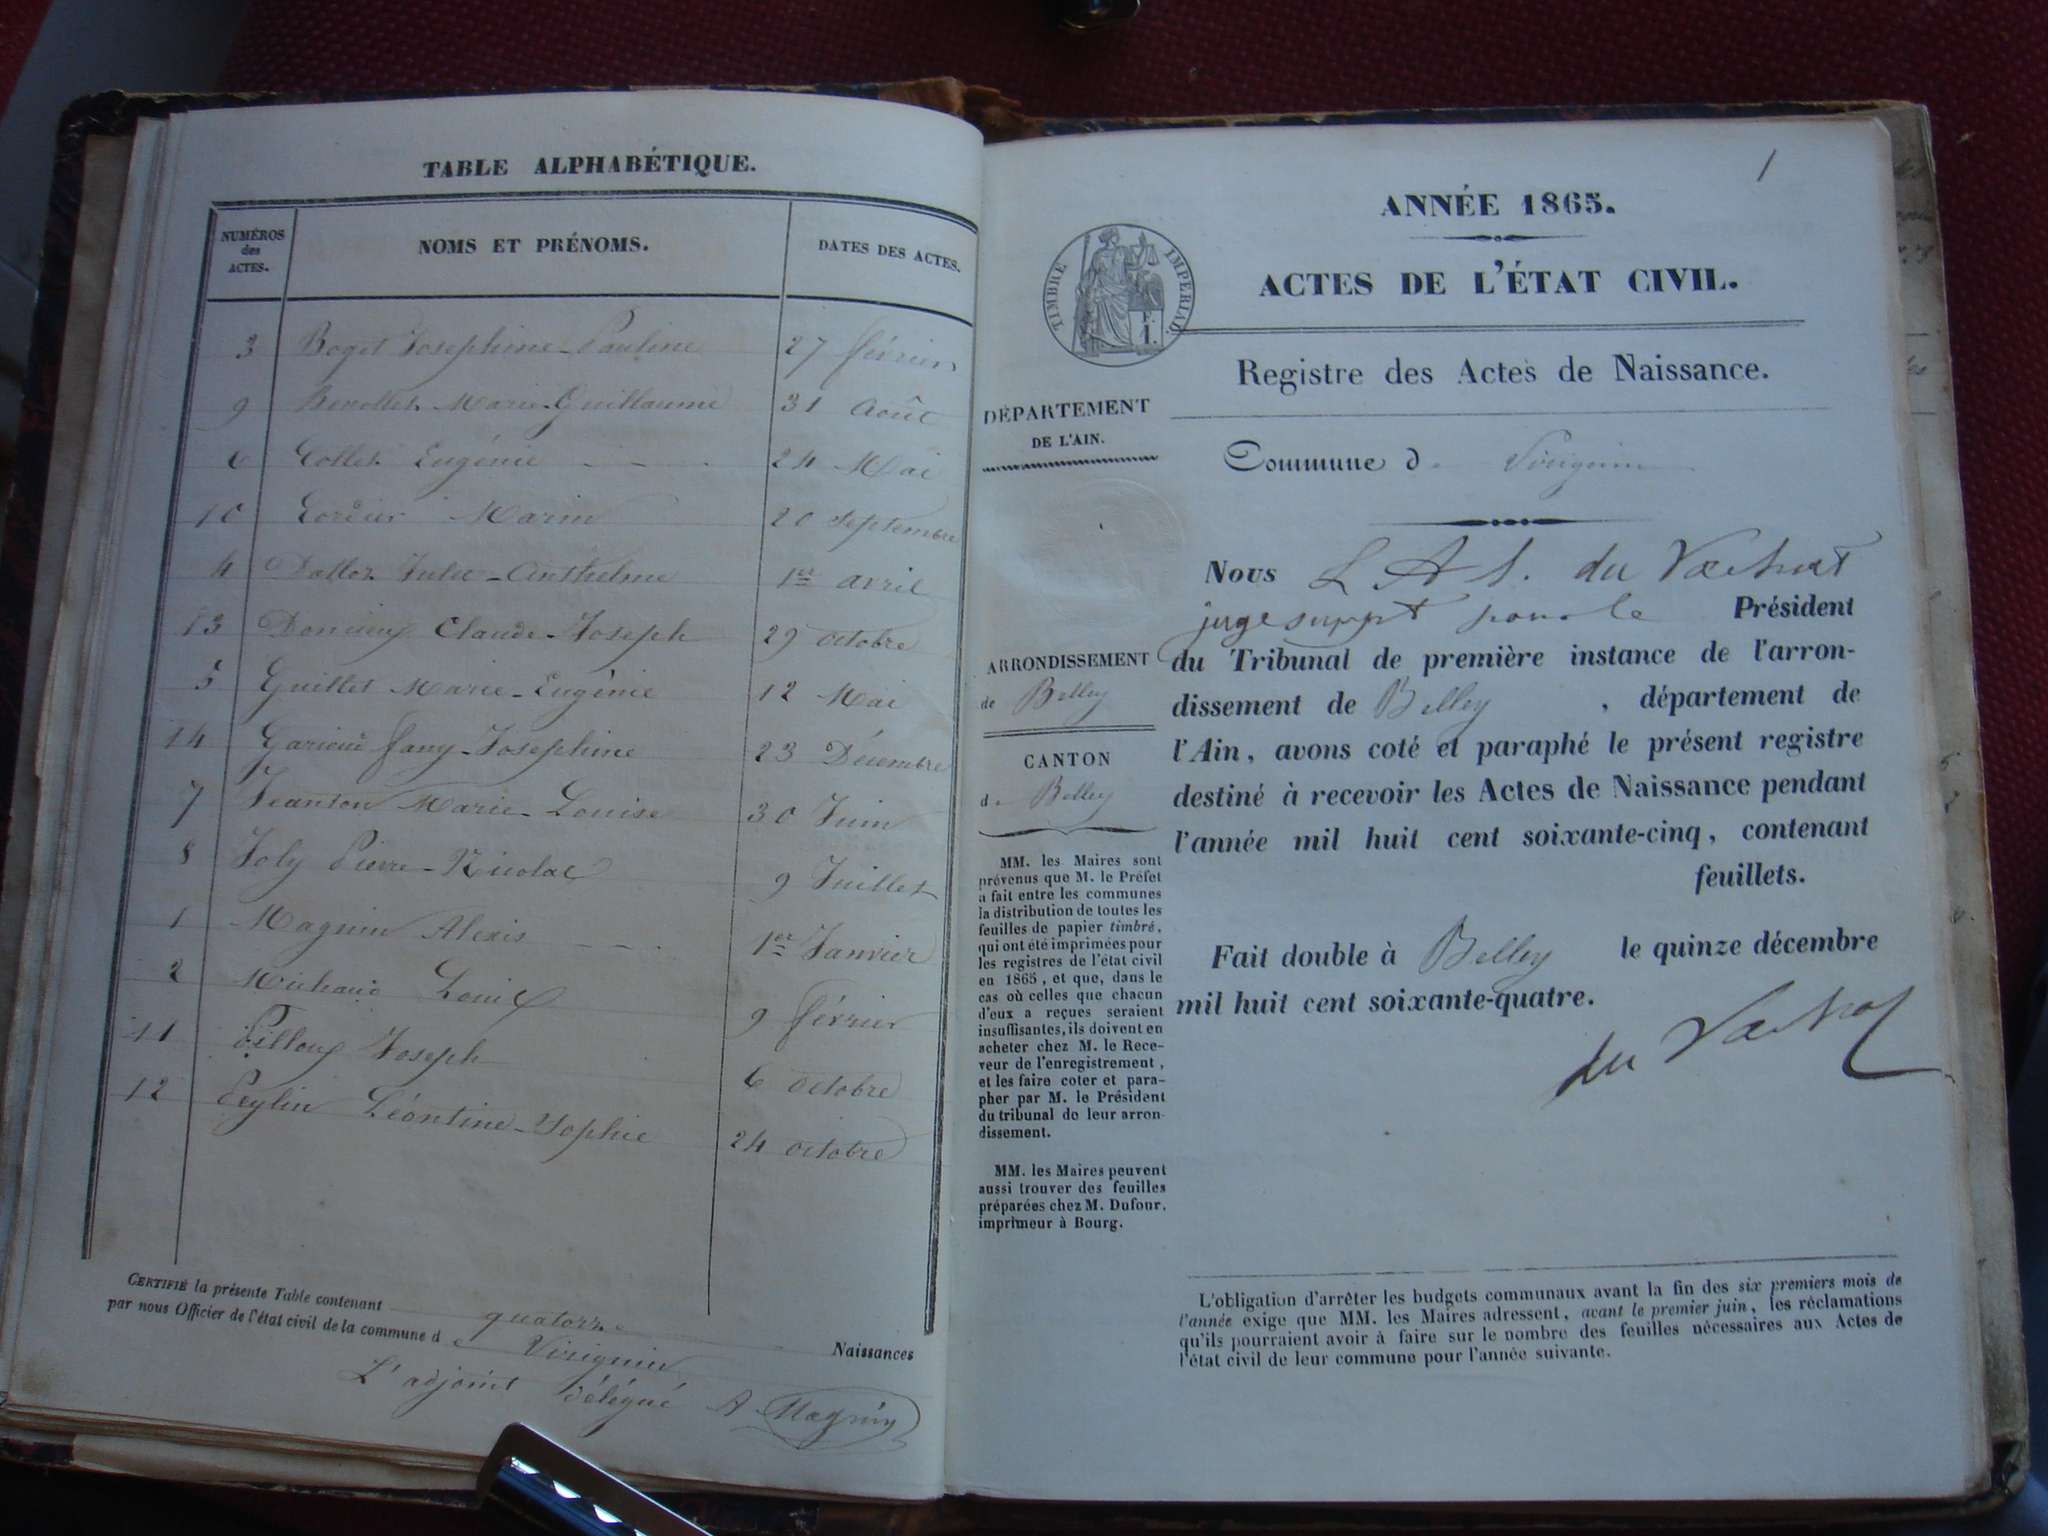 TABLE ALPHABÉTIQUE.
NUMÉROS des ACTES. NOMS ET PRÉNOMS. DATES DES ACTES.
3 Boget Josephine-Pauline 27 février
9 Marie-Guillaume 31 Août
6 Collet Eugénie 24 Mai
10 Cordier Marin 20 septembre
4 Julie-Anthelme 1er avril
13 Claude-Joseph 29 octobre
5 Guillet Marie-Eugénie 12 Mai
14 fany-Josephine 23 Décembre
7 Jeanton Marie-Louise 30 Juin
8 Joly Pierre-Nicolas 9 Juillet
1 Magnin Alexis 1er Janvier
2 Michaud Louis 9 février
11 Pilloux Joseph 6 octobre
12 Peylin Léontine-Sophie 24 octobre
CERTIFIÉ la présente Table contenant quatorze Naissances
par nous Officier de l'état civil de la commune de Virignin
L'adjoint délégué A Magnin
1
ANNÉE 1865.
TIMBRE IMPÉRIAL
F. 1.
ACTES DE L'ÉTAT CIVIL.
Registre des Actes de Naissance.
DÉPARTEMENT
DE L'AIN.
Commune de Virignin
Nous L A S. du Vachat
juge suppt pour le Président
du Tribunal de première instance de l'arron-
dissement de Belley, département de
l'Ain, avons coté et paraphé le présent registre
destiné à recevoir les Actes de Naissance pendant
l'année mil huit cent soixante-cinq, contenant
feuillets.
Fait double à Belley le quinze décembre
mil huit cent soixante-quatre.
du Vachat
ARRONDISSEMENT
de Belley
CANTON
de Belley
MM. les Maires sont
prévenus que M. le Préfet
a fait entre les communes
la distribution de toutes les
feuilles de papier timbré,
qui ont été imprimées pour
les registres de l'état civil
en 1865, et que, dans le
cas où celles que chacun
d'eux a reçues seraient
insuffisantes, ils doivent en
acheter chez M. le Rece-
veur de l'enregistrement,
et les faire coter et para-
pher par M. le Président
du tribunal de leur arron-
dissement.
MM. les Maires peuvent
aussi trouver des feuilles
préparées chez M. Dufour,
imprimeur à Bourg.
L'obligation d'arrêter les budgets communaux avant la fin des six premiers mois de
l'année exige que MM. les Maires adressent, avant le premier juin, les réclamations
qu'ils pourraient avoir à faire sur le nombre des feuilles nécessaires aux Actes de
l'état civil de leur commune pour l'année suivante.